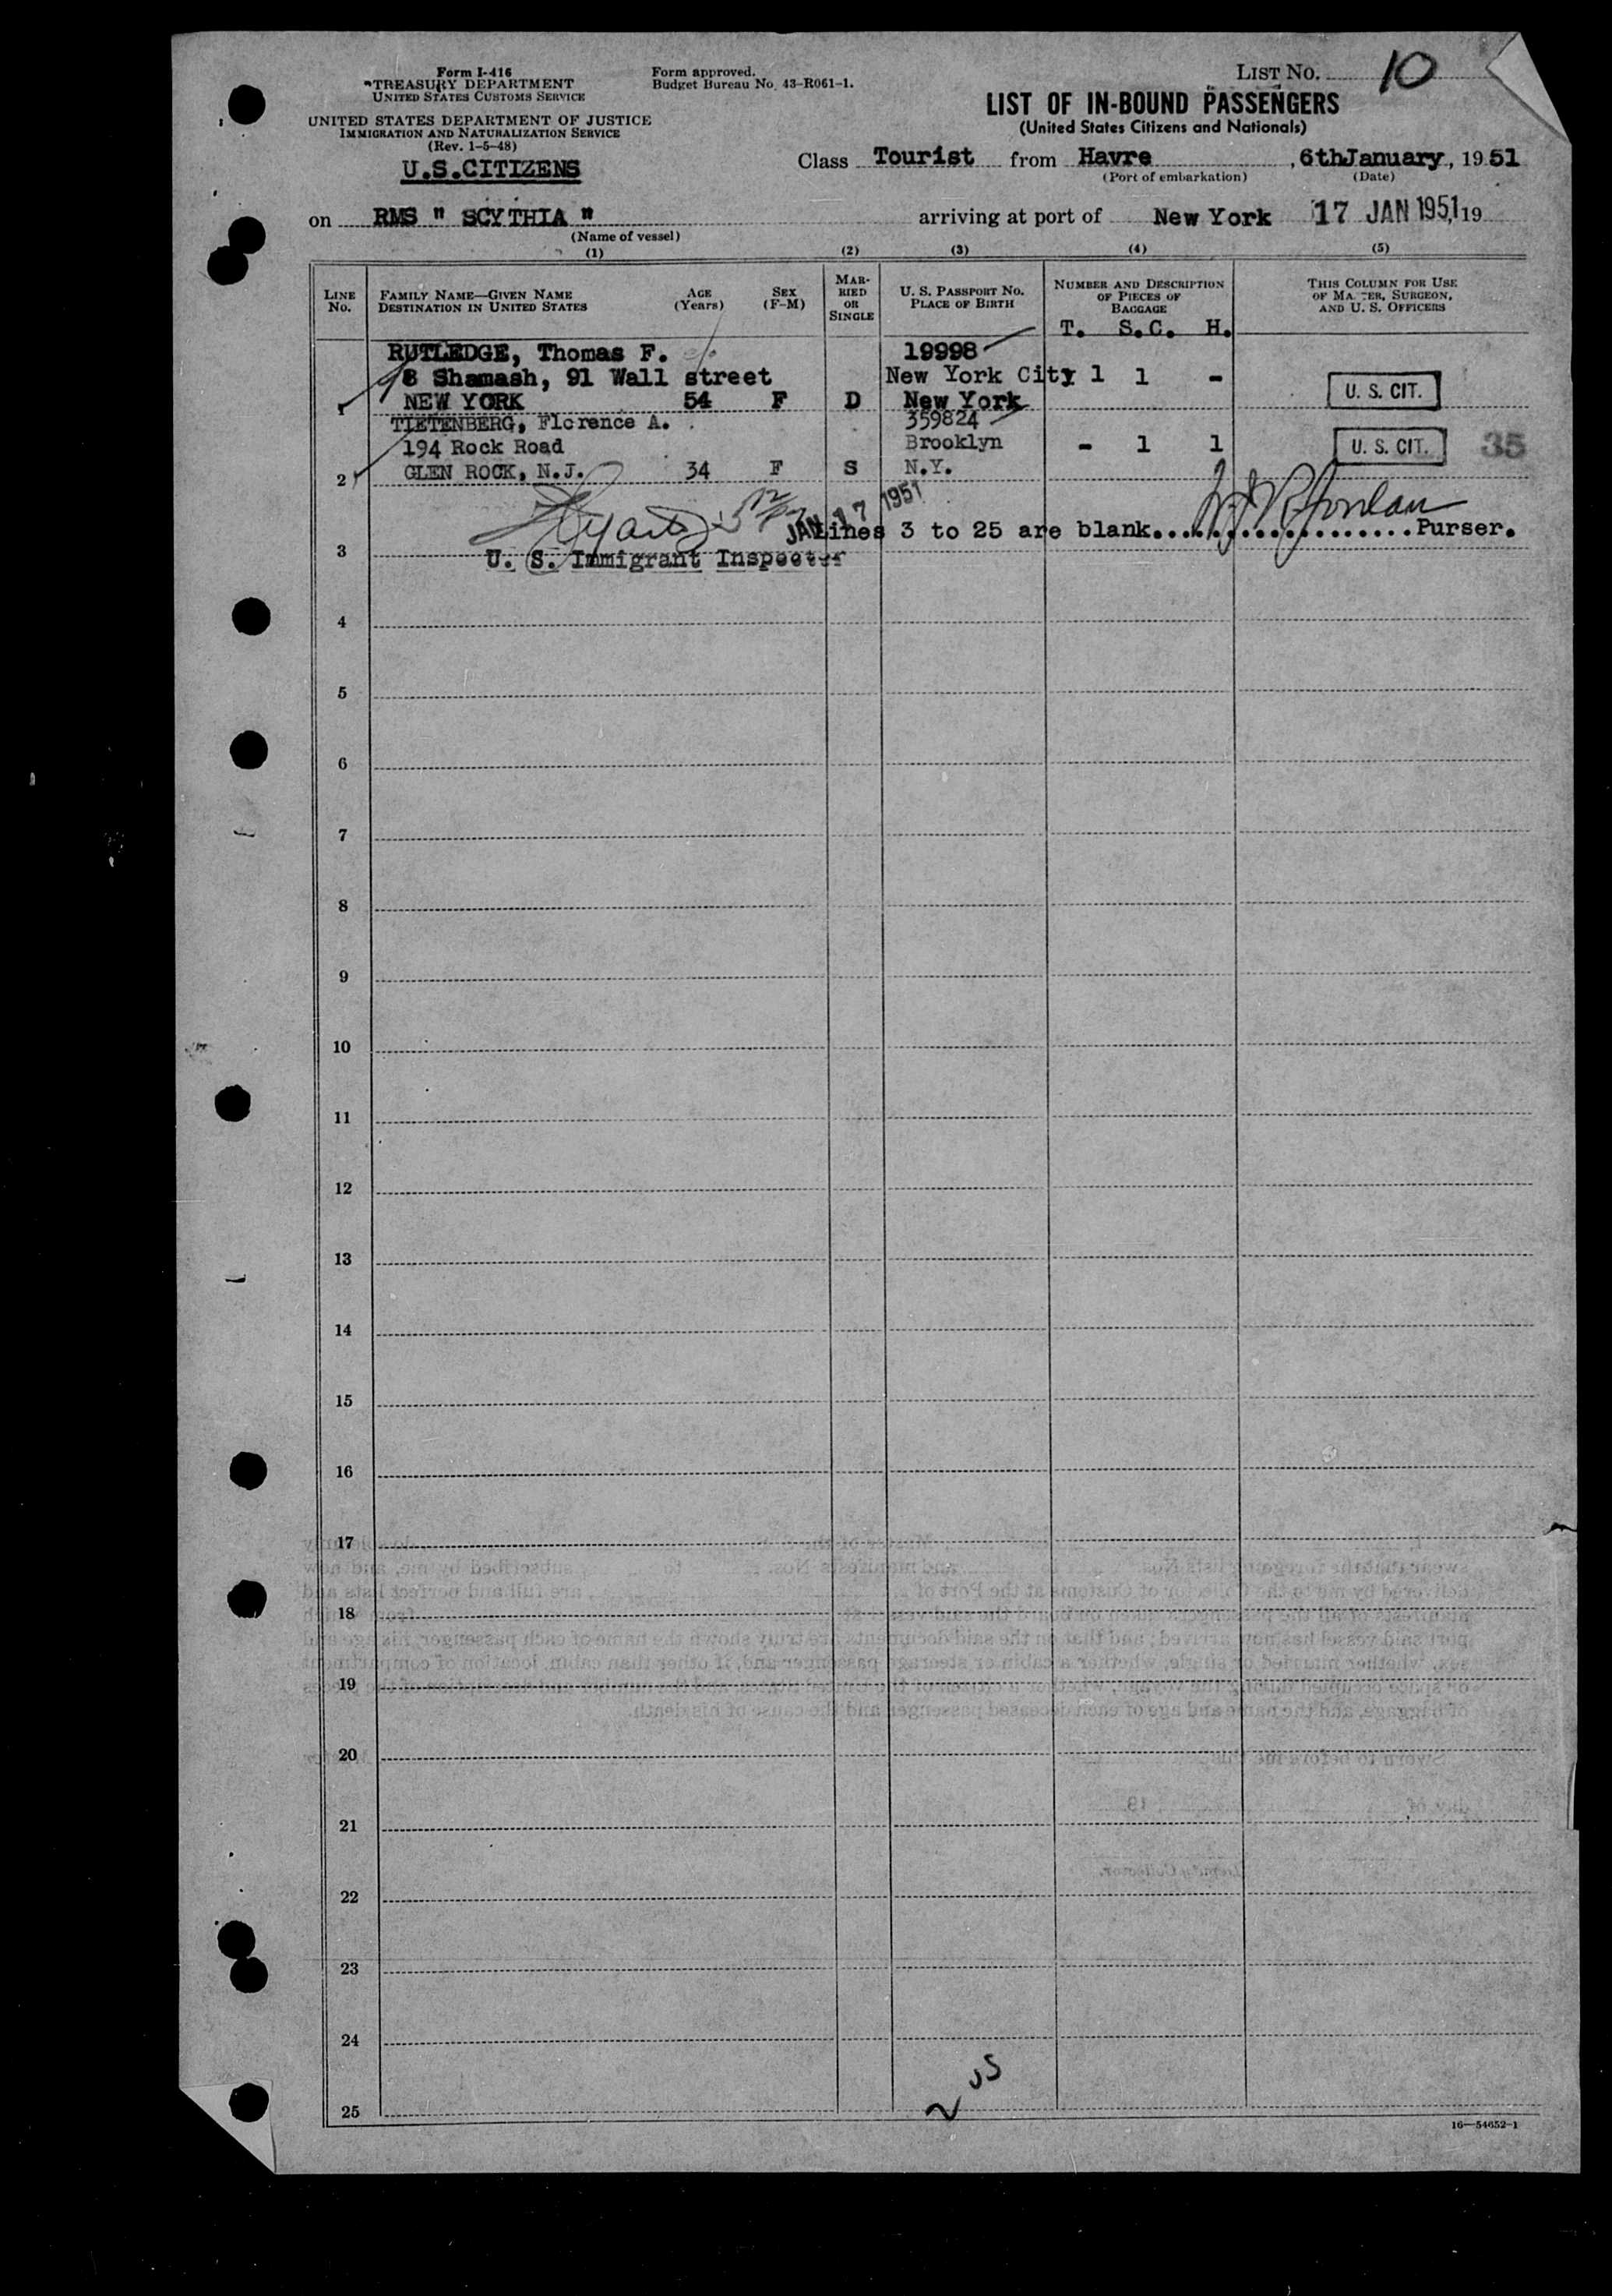 Form I-416
TREASURY DEPARTMENT
UNITED STATES CUSTOMS SERVICE
UNITED STATES DEPARTMENT OF JUSTICE
IMMIGRATION AND NATURALIZATION SERVICE
(Rev. 1-5-48)
U.S.CITIZENS
Form approved.
Budget Bureau No. 43-R061-1.
LIST NO. 10
LIST OF IN-BOUND PASSENGERS
(United States Citizens and Nationals)
Class Tourist from Havre , 6thJanuary, 1951
(Port of embarkation) (Date)
on RMS " SCYTHIA " arriving at port of New York 17 JAN 1951, 19
(Name of vessel)
(1) (2) (3) (4) (5)
LINE No.
FAMILY NAME—GIVEN NAME
DESTINATION IN UNITED STATES
AGE (Years)
SEX (F-M)
MARRIED OR SINGLE
U. S. PASSPORT NO.
PLACE OF BIRTH
NUMBER AND DESCRIPTION OF PIECES OF BAGGAGE
T. S.C. H.
THIS COLUMN FOR USE OF MASTER, SURGEON, AND U. S. OFFICERS
RUTLEDGE, Thomas F. 19998
Shamash, 91 Wall street New York City 1 1 -
1 NEW YORK 54 F D New York U. S. CIT.
TIETENBERG, Florence A. 359824
194 Rock Road Brooklyn - 1 1 U. S. CIT. 35
2 GLEN ROCK, N.J. 34 F S N.Y.
JAN 17 1951
3 Lines 3 to 25 are blank...................Purser.
U. S. Immigrant Inspector
4
5
6
7
8
9
10
11
12
13
14
15
16
17
18
19
20
21
22
23
24
25
2 US
16—54652-1